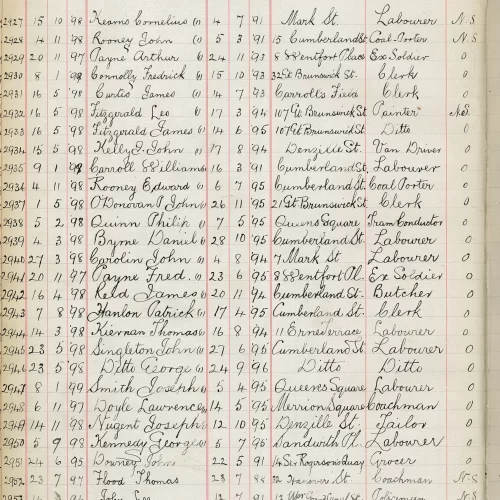 2927 15 10 98 Kearns Cornelius (1) 4 7 91 Mark St. Labourer N.S
2928 4 11 98 Rooney John (1) 5 3 91 15 Cumberland St Coal Porter N.S
2929 20 11 97 Payne Arthur 24 11 93 8 Wentfort Place Ex Soldier 0
2930 8 1 98 Connolly Fredrick 15 10 93 32 Gt Brunswick St. Clerk 0
2931 16 5 98 Curtis James (1) 14 7 93 Carrolls Field Clerk 0
2932 16 5 98 Fitzgerald Leo 17 3 94 107 Gt Brunswick St Painter N.S.
2933 16 5 98 Fitzgerald James (1) 14 6 95 107 Gt Brunswick St Ditto 0
2934 15 5 98 Kelly J. John 17 8 94 Denzille St. Van Driver 0
2935 9 1 98 Carroll William 16 3 91 Cumberland St. Labourer 0
2936 4 11 98 Rooney Edward (1) 6 7 95 Cumberland St. Coal Porter 0
2937 1 5 98 O'Donovan P John 26 11 95 21 Gt Brunswick St. Clerk 0
2938 5 2 98 Quinn Philip 7 5 95 Queens Square Tram Conductor 0
2939 4 3 98 Byrne Daniel 28 10 95 Cumberland St. Labourer 0
2940 27 3 98 Carolin John 4 8 94 7 Mark St Labourer 0
2941 20 11 97 Payne Fred. 23 6 95 8 Wentfort Pl. Ex Soldier 0
2942 16 4 98 Reid James 20 11 94 Cumberland St. Butcher 0
2943 7 8 98 Hanlon Patrick 17 4 95 Cumberland St. Clerk 0
2944 14 3 98 Kiernan Thomas 16 8 94 11 Erne Terrace Labourer 0
2945 23 5 98 Singleton John 27 6 95 Cumberland St. Labourer 0
2946 23 5 98 Ditto George 24 9 96 Ditto Ditto 0
2947 8 1 99 Smith Joseph 5 4 96 Queens Square Labourer 0
2948 6 11 97 Doyle Lawrence 14 5 95 Merrion Square Coachman 0
2949 14 11 98 Nugent Joseph 12 10 95 Denzille St. Tailor 0
2950 5 9 98 Kennedy George 5 7 95 Sandwith Pl. Labourer 0
2951 24 6 95 Downey John 22 5 91 14 Sir Rogersons Quay Grocer 0
23 7 97 Flood Thomas 28 7 Hanover St. Coachman N.S
John 12 7 91 N.S